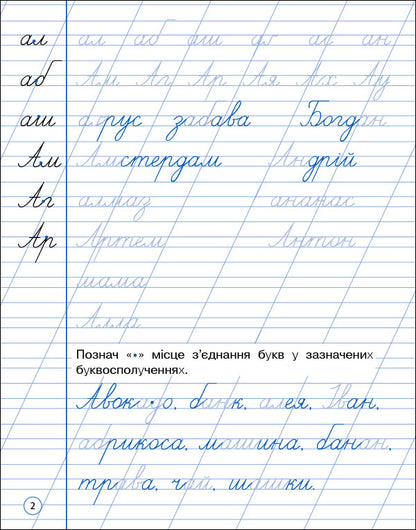 ал ал аб аш ая аг ан
аб Ам Ап Ар Ая Ах Ау
аш арус забава Богдан
Ам Амстердам Андрій
Ап алмаз ананас
Ар Артем Антон
мама
Алла
Познач «•» місце з’єднання букв у зазначених
буквосполученнях.
Авокадо, банк, алея, Іван,
абрикоса, машина, банан,
трава, чай, шашки.
2